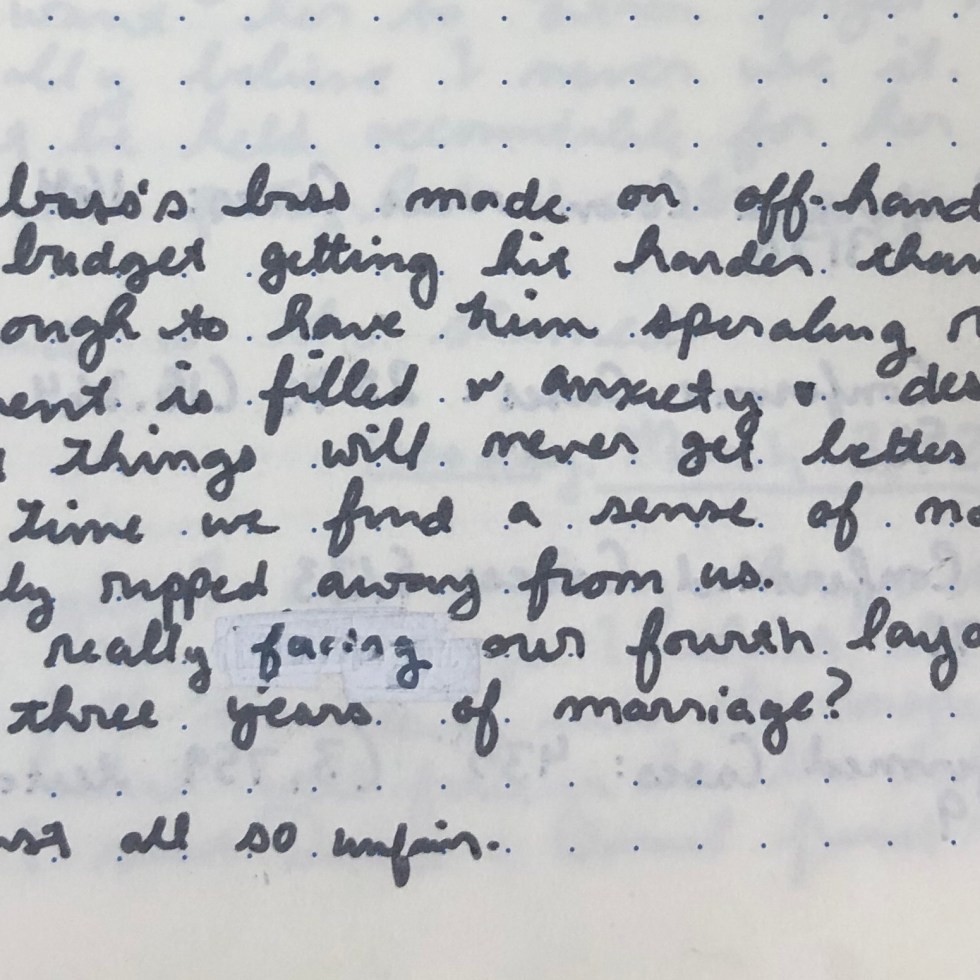 boss's boss made an off-hand
budget getting hit harder than
ough to have him spiraling
ent is filled w anxiety + des
things will never get better
time we find a sense of no
ly ripped away from us.
really facing our fourth layo
three years of marriage?
ust all so unfair.